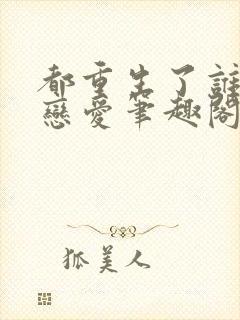 都重生了誰
戀愛筆趣閣
狐美人